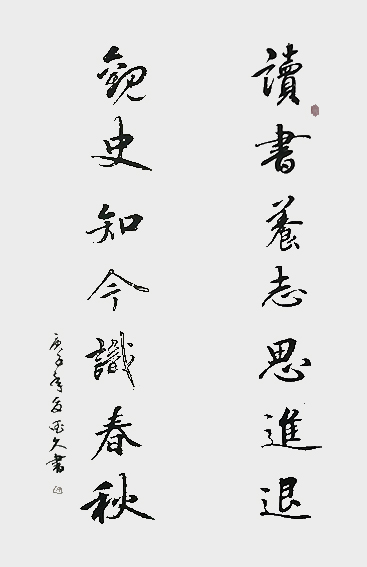 讀書養志思進退
觀史知今識春秋
庚子年
久書